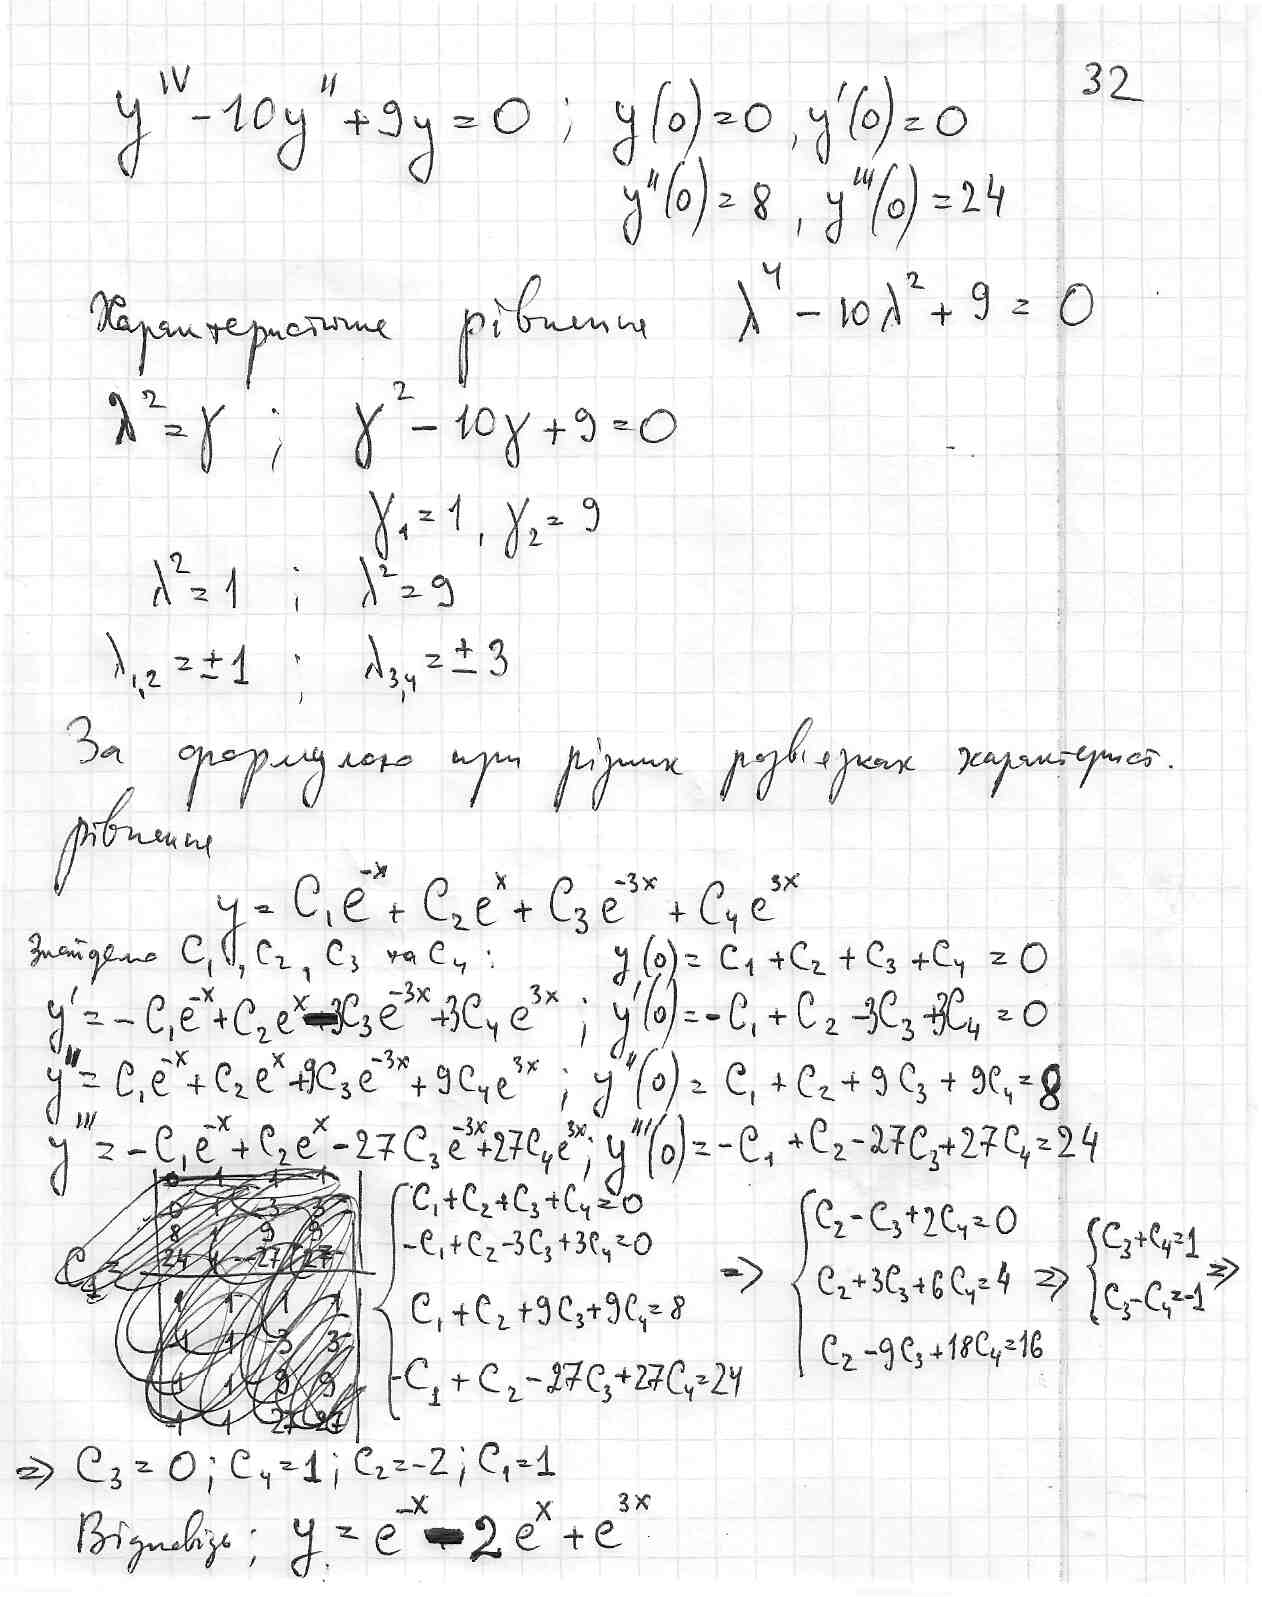 32
yᴵⱽ - 10y'' + 9y = 0 ; y(0) = 0 , y'(0) = 0
y''(0) = 8 , y'''(0) = 24
Характеристичне рівняння λ⁴ - 10λ² + 9 = 0
λ² = γ ; γ² - 10γ + 9 = 0
γ₁ = 1 , γ₂ = 9
λ² = 1 ; λ² = 9
λ₁,₂ = ± 1 ; λ₃,₄ = ± 3
За формулою при різних розв'язках характерист.
рівняння
y = C₁e⁻ˣ + C₂eˣ + C₃e⁻³ˣ + C₄e³ˣ
Знайдемо C₁ , C₂ , C₃ та C₄ : y(0) = C₁ + C₂ + C₃ + C₄ = 0
y' = - C₁e⁻ˣ + C₂eˣ - 3C₃e⁻³ˣ + 3C₄e³ˣ ; y'(0) = - C₁ + C₂ - 3C₃ + 3C₄ = 0
y'' = C₁e⁻ˣ + C₂eˣ + 9C₃e⁻³ˣ + 9C₄e³ˣ ; y''(0) = C₁ + C₂ + 9C₃ + 9C₄ = 8
y''' = - C₁e⁻ˣ + C₂eˣ - 27C₃e⁻³ˣ + 27C₄e³ˣ ; y'''(0) = - C₁ + C₂ - 27C₃ + 27C₄ = 24
C₁ + C₂ + C₃ + C₄ = 0
- C₁ + C₂ - 3C₃ + 3C₄ = 0
C₁ + C₂ + 9C₃ + 9C₄ = 8
- C₁ + C₂ - 27C₃ + 27C₄ = 24
=> C₂ - C₃ + 2C₄ = 0
C₂ + 3C₃ + 6C₄ = 4
C₂ - 9C₃ + 18C₄ = 16
=> C₃ + C₄ = 1
C₃ - C₄ = -1 =>
=> C₃ = 0 ; C₄ = 1 ; C₂ = -2 ; C₁ = 1
Відповідь ; y = e⁻ˣ - 2eˣ + e³ˣ